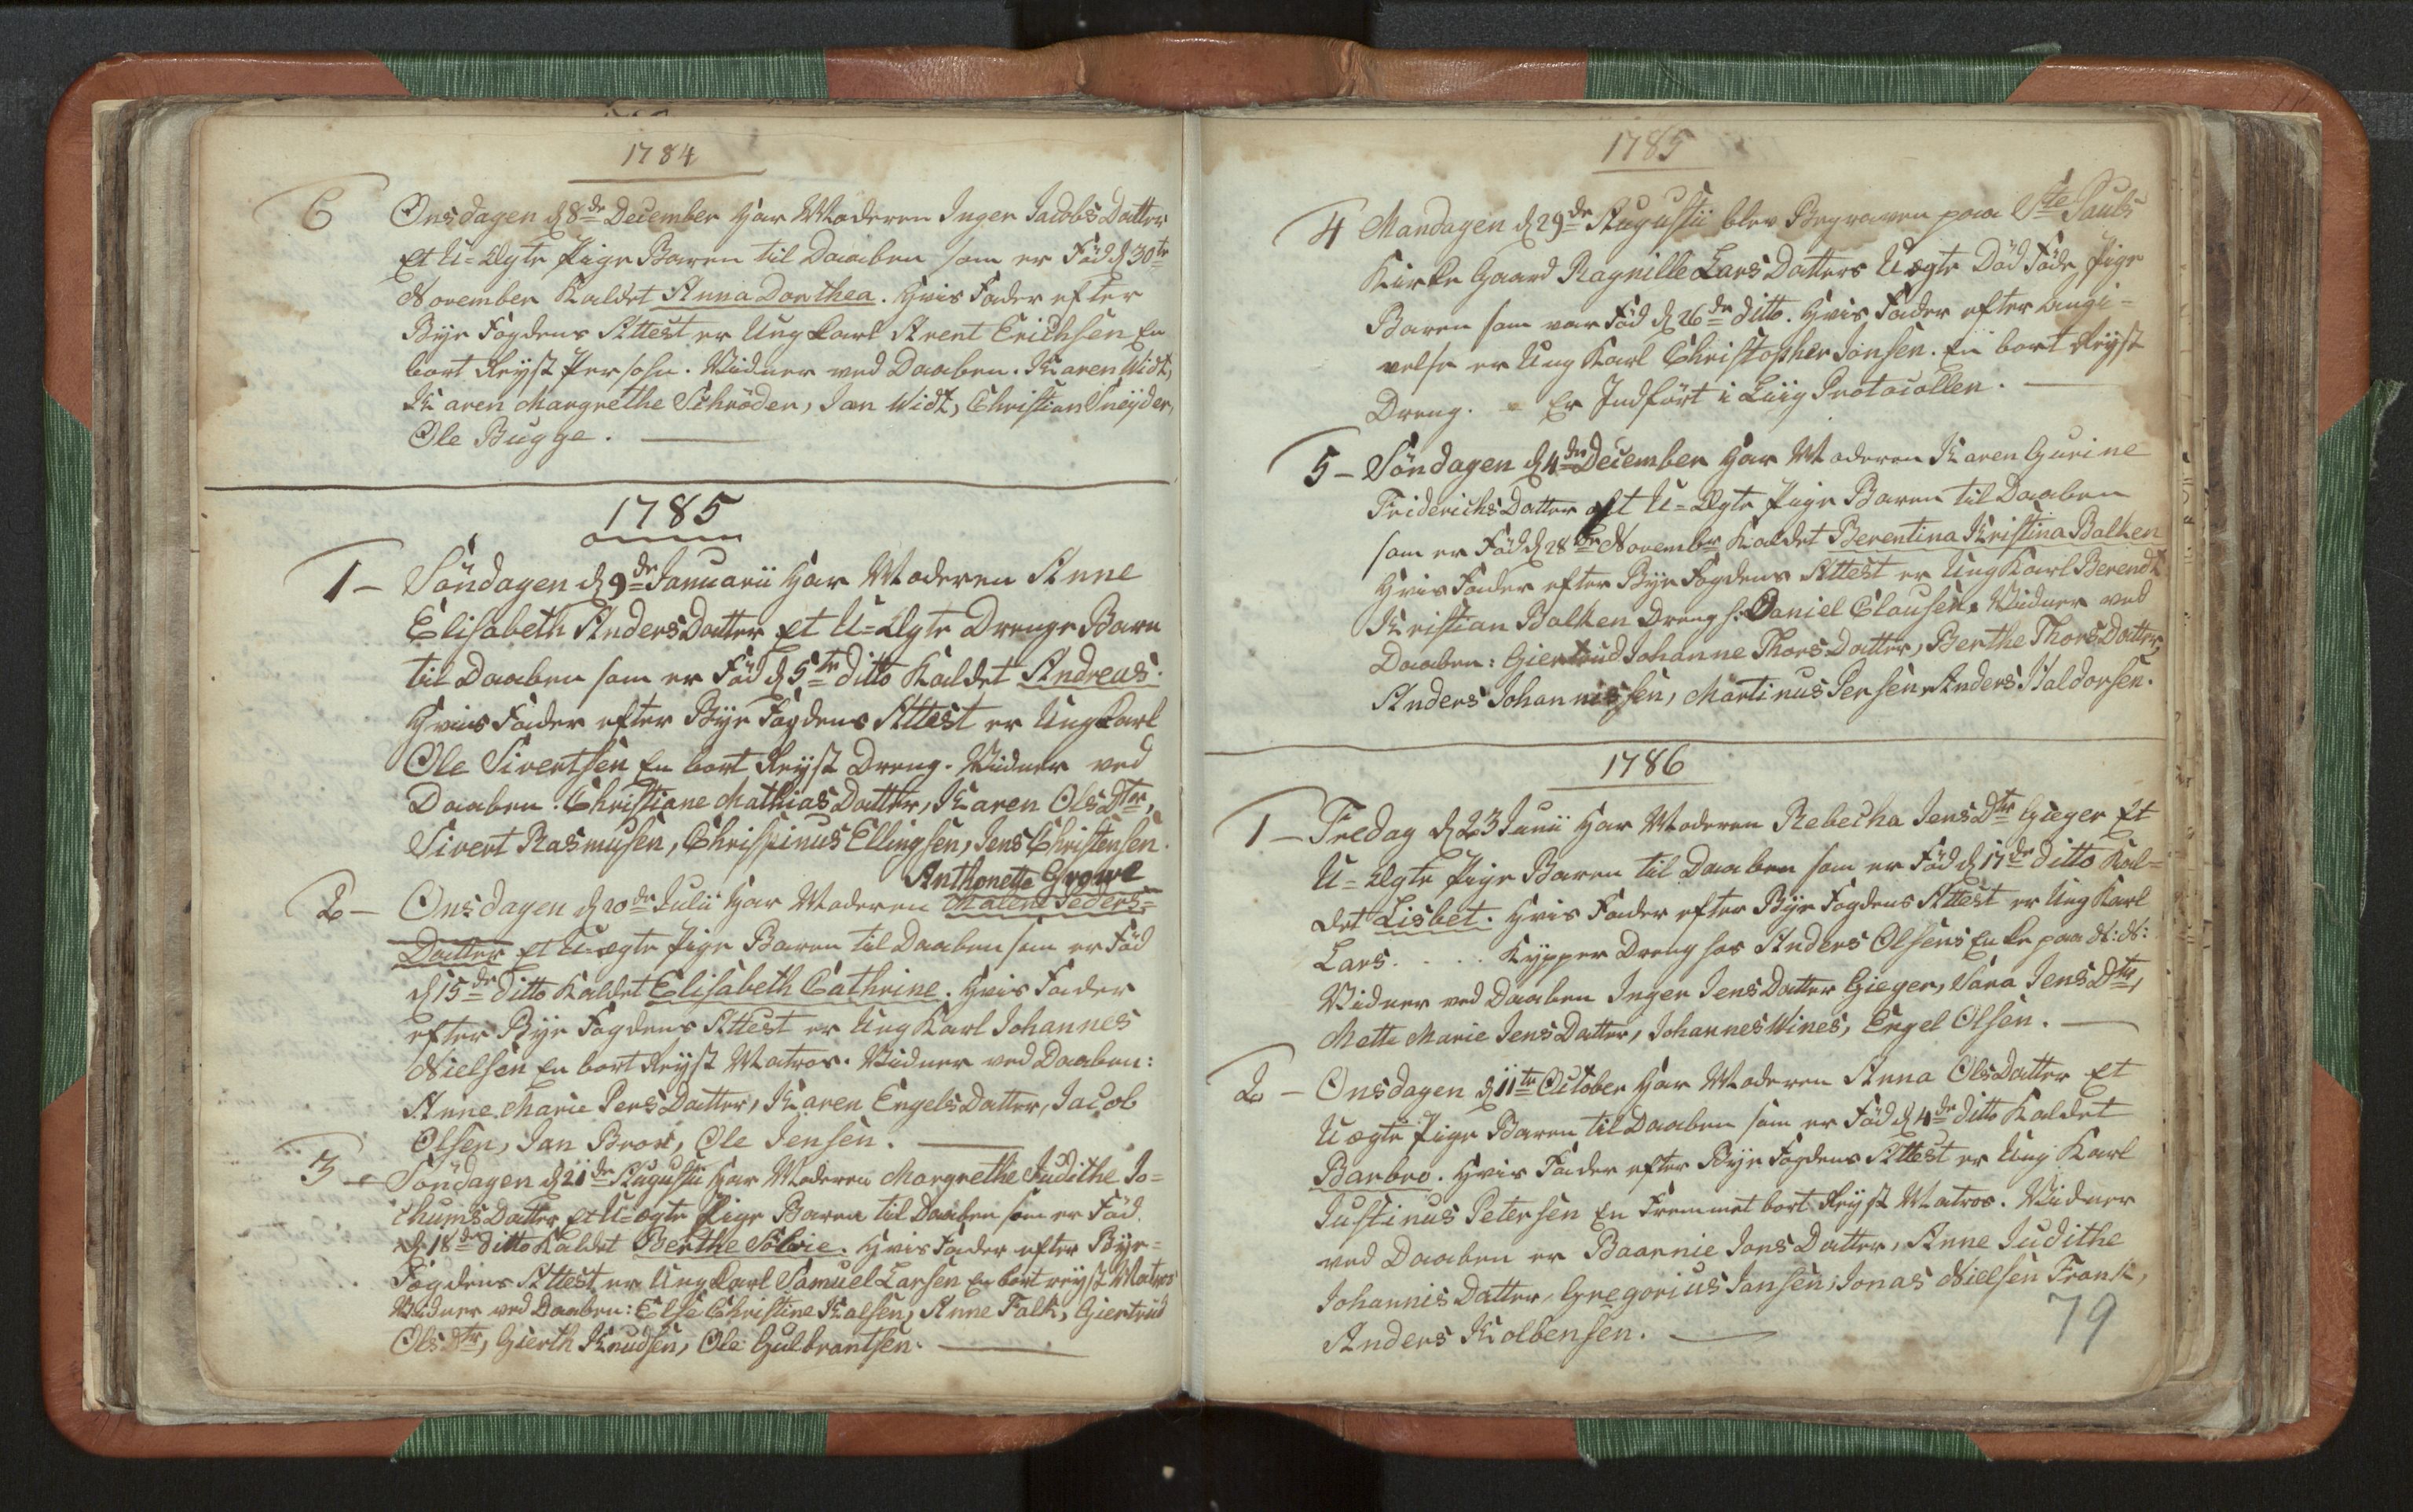 1784
6 Onsdagen d 8de December har Moderen Inger Jacobs Datter
Et U=Ægte Pige Baren til Daaben som er Föd d 30te
November Kaldet Anna Dorthea. Hvis Fader efter
Bÿe Fogdens Attest er Ung Karl Arent Erichsen En
bort Reÿst Persohn. Vidner ved Daaben. Karen Widt,
Karen Margrethe Schröder, Jan Widt, Christian Sneÿder,
Ole Bugge.
1785
1 - Söndagen d 9de Januarii har Moderen Anne
Elisabeth Anders Datter Et U=Ægte Drenge Barn
til Daaben som er Föd d 5te ditto Kaldet Andreas.
Hvis Fader efter Bÿe Fogdens Attest er Ung Karl
Ole Sivertsen En bort Reÿst Dreng. Vidner ved
Daaben. Christiane Mathias Datter, Karen Ols Dtr,
Sivert Rasmusen, Christinus Ellingsen, Jens Christensen.
Anthonette Growe
2 - Onsdagen d 20de Julii har Moderen Malene Peders=
Datter Et U=ægte Pige Baren til Daaben som er Föd
d 15de ditto Kaldet Elisabeth Cathrine. Hvis Fader
efter Bÿe Fogdens Attest er Ung Karl Johannes
Nielsen En bort Reÿst Matros. Vidner ved Daaben:
Anne Marie Pers Datter, Karen Engels Datter, Jacob
Olsen, Jan Bror, Ole Jensen.
3 - Söndagen d 21de Augustii har Moderen Margrethe Judithe Jo=
chums Datter Et U=ægte Pige Baren til Daaben som er Föd
d 18de ditto Kaldet Berthe Solvie. Hvis Fader efter Bÿe=
Fogdens Attest er Ung Karl Samuel Larsen En bort reÿst Matros
Vidner ved Daaben: Else Christine Kalsen, Anne Falk, Giertrud
Ols Dtr, Gierth Knudsen, Ole Gulbrantsen.
1785
4 Mandagen d 29de Augustii blev Begraven paa Ste Pauls
Kirke Gaard Ragnille Lars Datters Uægte Död Föde Pige
Baren som var Föd d 26de ditto. Hvis Fader efter angi=
velse er Ung Karl Christopher Jonsen. En bort Reÿst
Dreng. - Er Indfört i Liig Protocollen.
5 - Söndagen d 4de December har Moderen Karen Gurine
Friderichs Datter Et U=Ægte Pige Baren til Daaben
som er Föd d 28de November Kaldet Berentina Kristina Balken
Hvis Fader efter Bÿe Fogdens Attest er Ung Karl Berendt
Kristian Balken Dreng h: Daniel Clausen. Vidner ved
Daaben: Giertrud Johanne Thors Datter, Berthe Thors Datter,
Anders Johannissen, Martinus Persen, Anders Haldorsen.
1786
1 - Fredag d 23 Junii har Moderen Rebecha Jens Dtr Gieger Et
U=Ægte Pige Baren til Daaben som er Föd d 17de ditto Kal=
det Lisbet. Hvis Fader efter Bÿe Fogdens Attest er Ung Karl
Lars . . . . Kypper Dreng hos Anders Olsens Enke paa N: N:
Vidner ved Daaben Inger Jens Datter Gieger, Sara Jens Dtr,
Mette Marie Jens Datter, Johannes Wines, Engel Olsen.
2 - Onsdagen d 11te October har Moderen Anna Ols Datter Et
Uægte Pige Baren til Daaben som er Föd d 4de ditto Kaldet
Barbro. Hvis Fader efter Bÿe Fogdens Attest er Ung Karl
Justinus Petersen En Fremmet bort Reÿst Matros. Vidner
ved Daaben er Baarnie Jons Datter, Anne Judithe
Johannis Datter, Gregorius Jansen, Jonas Nielsen Frank,
Anders Kolbensen.
79